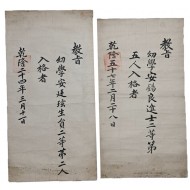 敎旨
幼學安錫良進士三等第
五人入格者
乾隆五十七年三月二十八日
敎旨
幼學安廷玹生員二等第二人
入格者
乾隆二十四年三月十一日